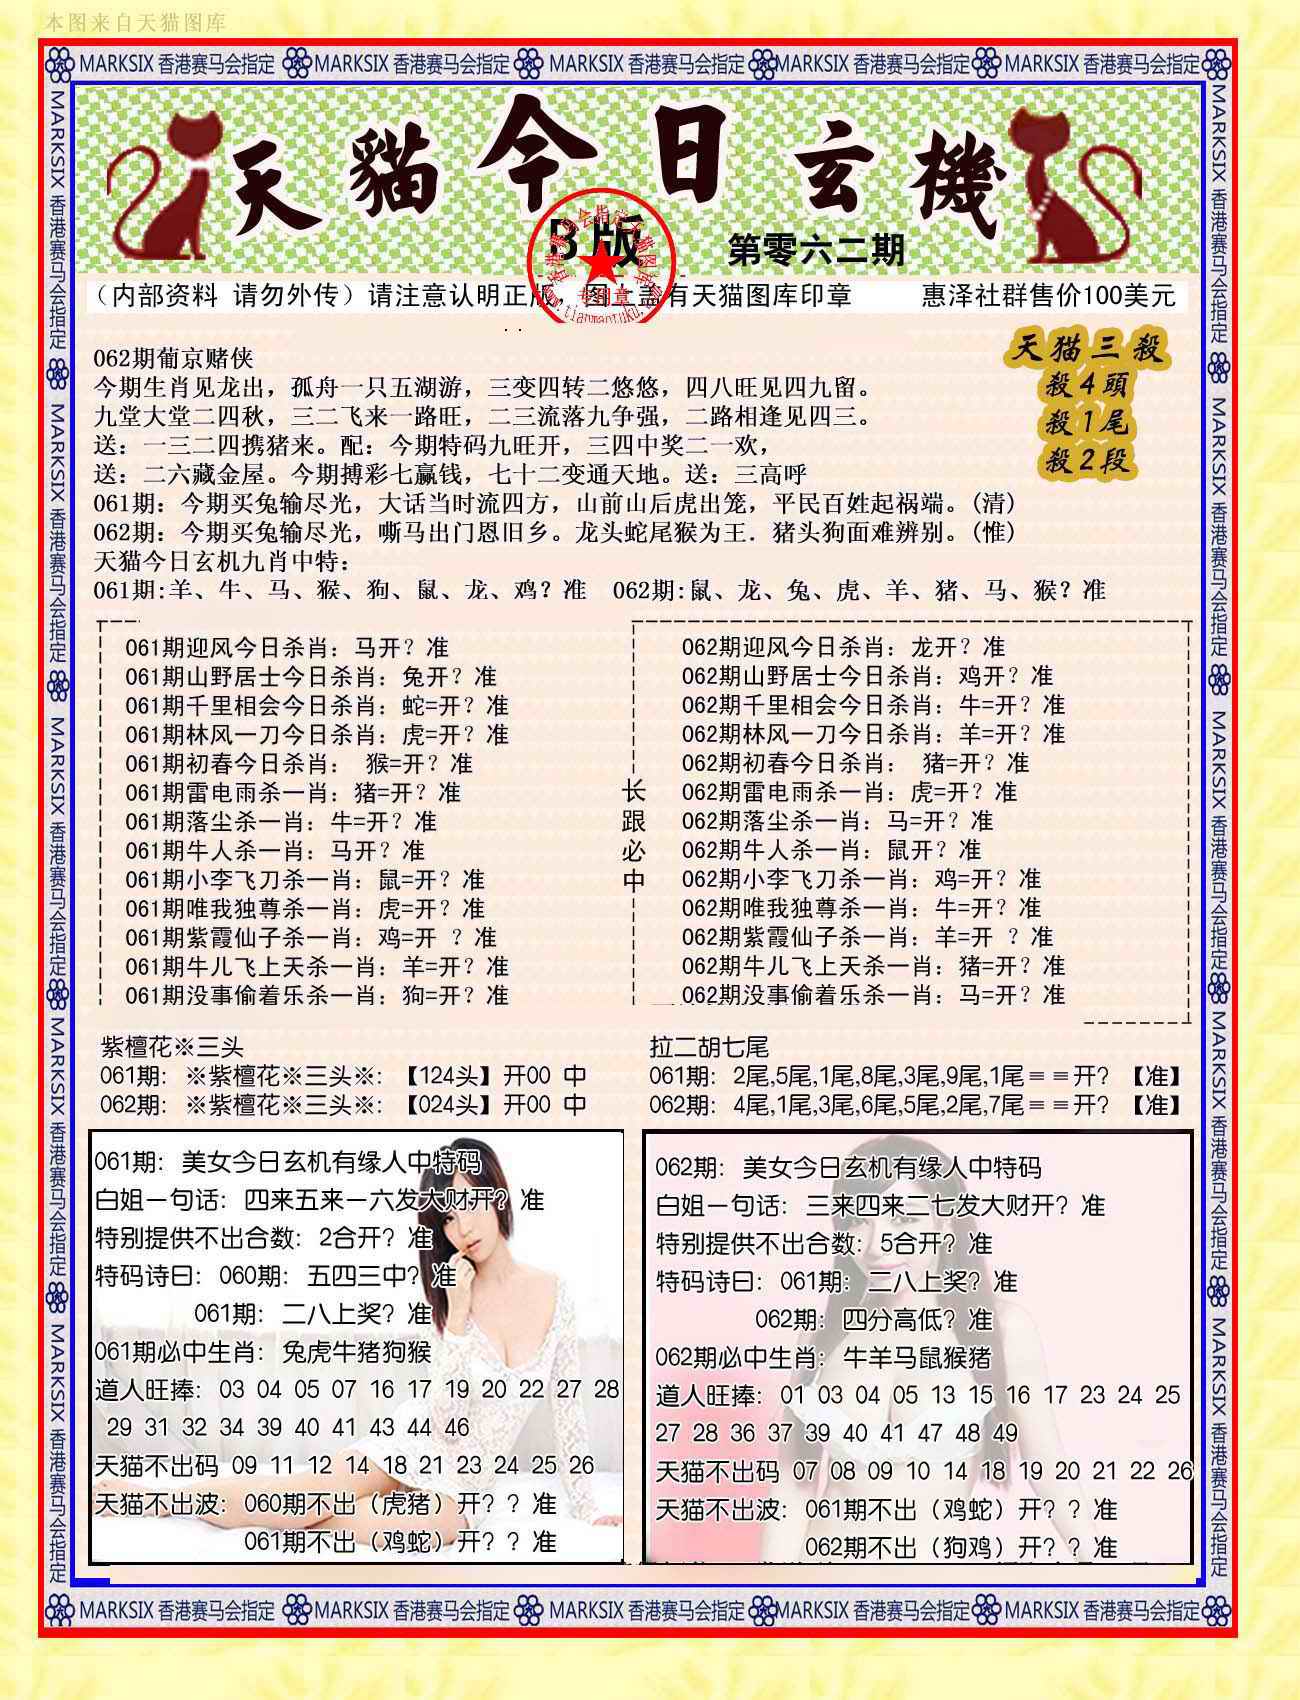 本图来自天猫图库
MARKSIX 香港赛马会指定 MARKSIX 香港赛马会指定 MARKSIX 香港赛马会指定 MARKSIX 香港赛马会指定 MARKSIX 香港赛马会指定
MARKSIX 香港赛马会指定 MARKSIX 香港赛马会指定 MARKSIX 香港赛马会指定 MARKSIX 香港赛马会指定 MARKSIX 香港赛马会指定
天貓今日玄機
B版
第零六二期
香港赛马会指定天猫图库
专用章
(内部资料 请勿外传)请注意认明正版,图上盖有天猫图库印章 惠泽社群售价100美元
天猫三殺
殺4頭
殺1尾
殺2段
062期葡京赌侠
今期生肖见龙出,孤舟一只五湖游,三变四转二悠悠,四八旺见四九留。
九堂大堂二四秋,三二飞来一路旺,二三流落九争强,二路相逢见四三。
送:一三二四携猪来。配:今期特码九旺开,三四中奖二一欢,
送:二六藏金屋。今期搏彩七赢钱,七十二变通天地。送:三高呼
061期:今期买兔输尽光,大话当时流四方,山前山后虎出笼,平民百姓起祸端。(清)
062期:今期买兔输尽光,嘶马出门恩旧乡。龙头蛇尾猴为王.猪头狗面难辨别。(惟)
天猫今日玄机九肖中特:
061期:羊、牛、马、猴、狗、鼠、龙、鸡?准 062期:鼠、龙、兔、虎、羊、猪、马、猴?准
061期迎风今日杀肖:马开?准
061期山野居士今日杀肖:兔开?准
061期千里相会今日杀肖:蛇=开?准
061期林风一刀今日杀肖:虎=开?准
061期初春今日杀肖: 猴=开?准
061期雷电雨杀一肖:猪=开?准
061期落尘杀一肖:牛=开?准
061期牛人杀一肖:马开?准
061期小李飞刀杀一肖:鼠=开?准
061期唯我独尊杀一肖:虎=开?准
061期紫霞仙子杀一肖:鸡=开 ?准
061期牛儿飞上天杀一肖:羊=开?准
061期没事偷着乐杀一肖:狗=开?准
长
跟
必
中
062期迎风今日杀肖:龙开?准
062期山野居士今日杀肖:鸡开?准
062期千里相会今日杀肖:牛=开?准
062期林风一刀今日杀肖:羊=开?准
062期初春今日杀肖: 猪=开?准
062期雷电雨杀一肖:虎=开?准
062期落尘杀一肖:马=开?准
062期牛人杀一肖:鼠开?准
062期小李飞刀杀一肖:鸡=开?准
062期唯我独尊杀一肖:牛=开?准
062期紫霞仙子杀一肖:羊=开 ?准
062期牛儿飞上天杀一肖:猪=开?准
062期没事偷着乐杀一肖:马=开?准
紫檀花※三头
061期: ※紫檀花※三头※: 【124头】开00 中
062期: ※紫檀花※三头※: 【024头】开00 中
拉二胡七尾
061期: 2尾,5尾,1尾,8尾,3尾,9尾,1尾≡≡开? 【准】
062期: 4尾,1尾,3尾,6尾,5尾,2尾,7尾≡≡开? 【准】
061期:美女今日玄机有缘人中特码
白姐一句话:四来五来一六发大财开?准
特别提供不出合数:2合开?准
特码诗曰:060期:五四三中?准
061期:二八上奖?准
061期必中生肖:兔虎牛猪狗猴
道人旺捧:03 04 05 07 16 17 19 20 22 27 28
29 31 32 34 39 40 41 43 44 46
天猫不出码 09 11 12 14 18 21 23 24 25 26
天猫不出波:060期不出(虎猪)开??准
061期不出(鸡蛇)开??准
062期:美女今日玄机有缘人中特码
白姐一句话:三来四来二七发大财开?准
特别提供不出合数:5合开?准
特码诗曰:061期:二八上奖?准
062期:四分高低?准
062期必中生肖:牛羊马鼠猴猪
道人旺捧:01 03 04 05 13 15 16 17 23 24 25
27 28 36 37 39 40 41 47 48 49
天猫不出码 07 08 09 10 14 18 19 20 21 22 26
天猫不出波:061期不出(鸡蛇)开??准
062期不出(狗鸡)开??准
MARKSIX 香港赛马会指定 MARKSIX 香港赛马会指定 MARKSIX 香港赛马会指定 MARKSIX 香港赛马会指定 MARKSIX 香港赛马会指定
MARKSIX 香港赛马会指定 MARKSIX 香港赛马会指定 MARKSIX 香港赛马会指定 MARKSIX 香港赛马会指定 MARKSIX 香港赛马会指定